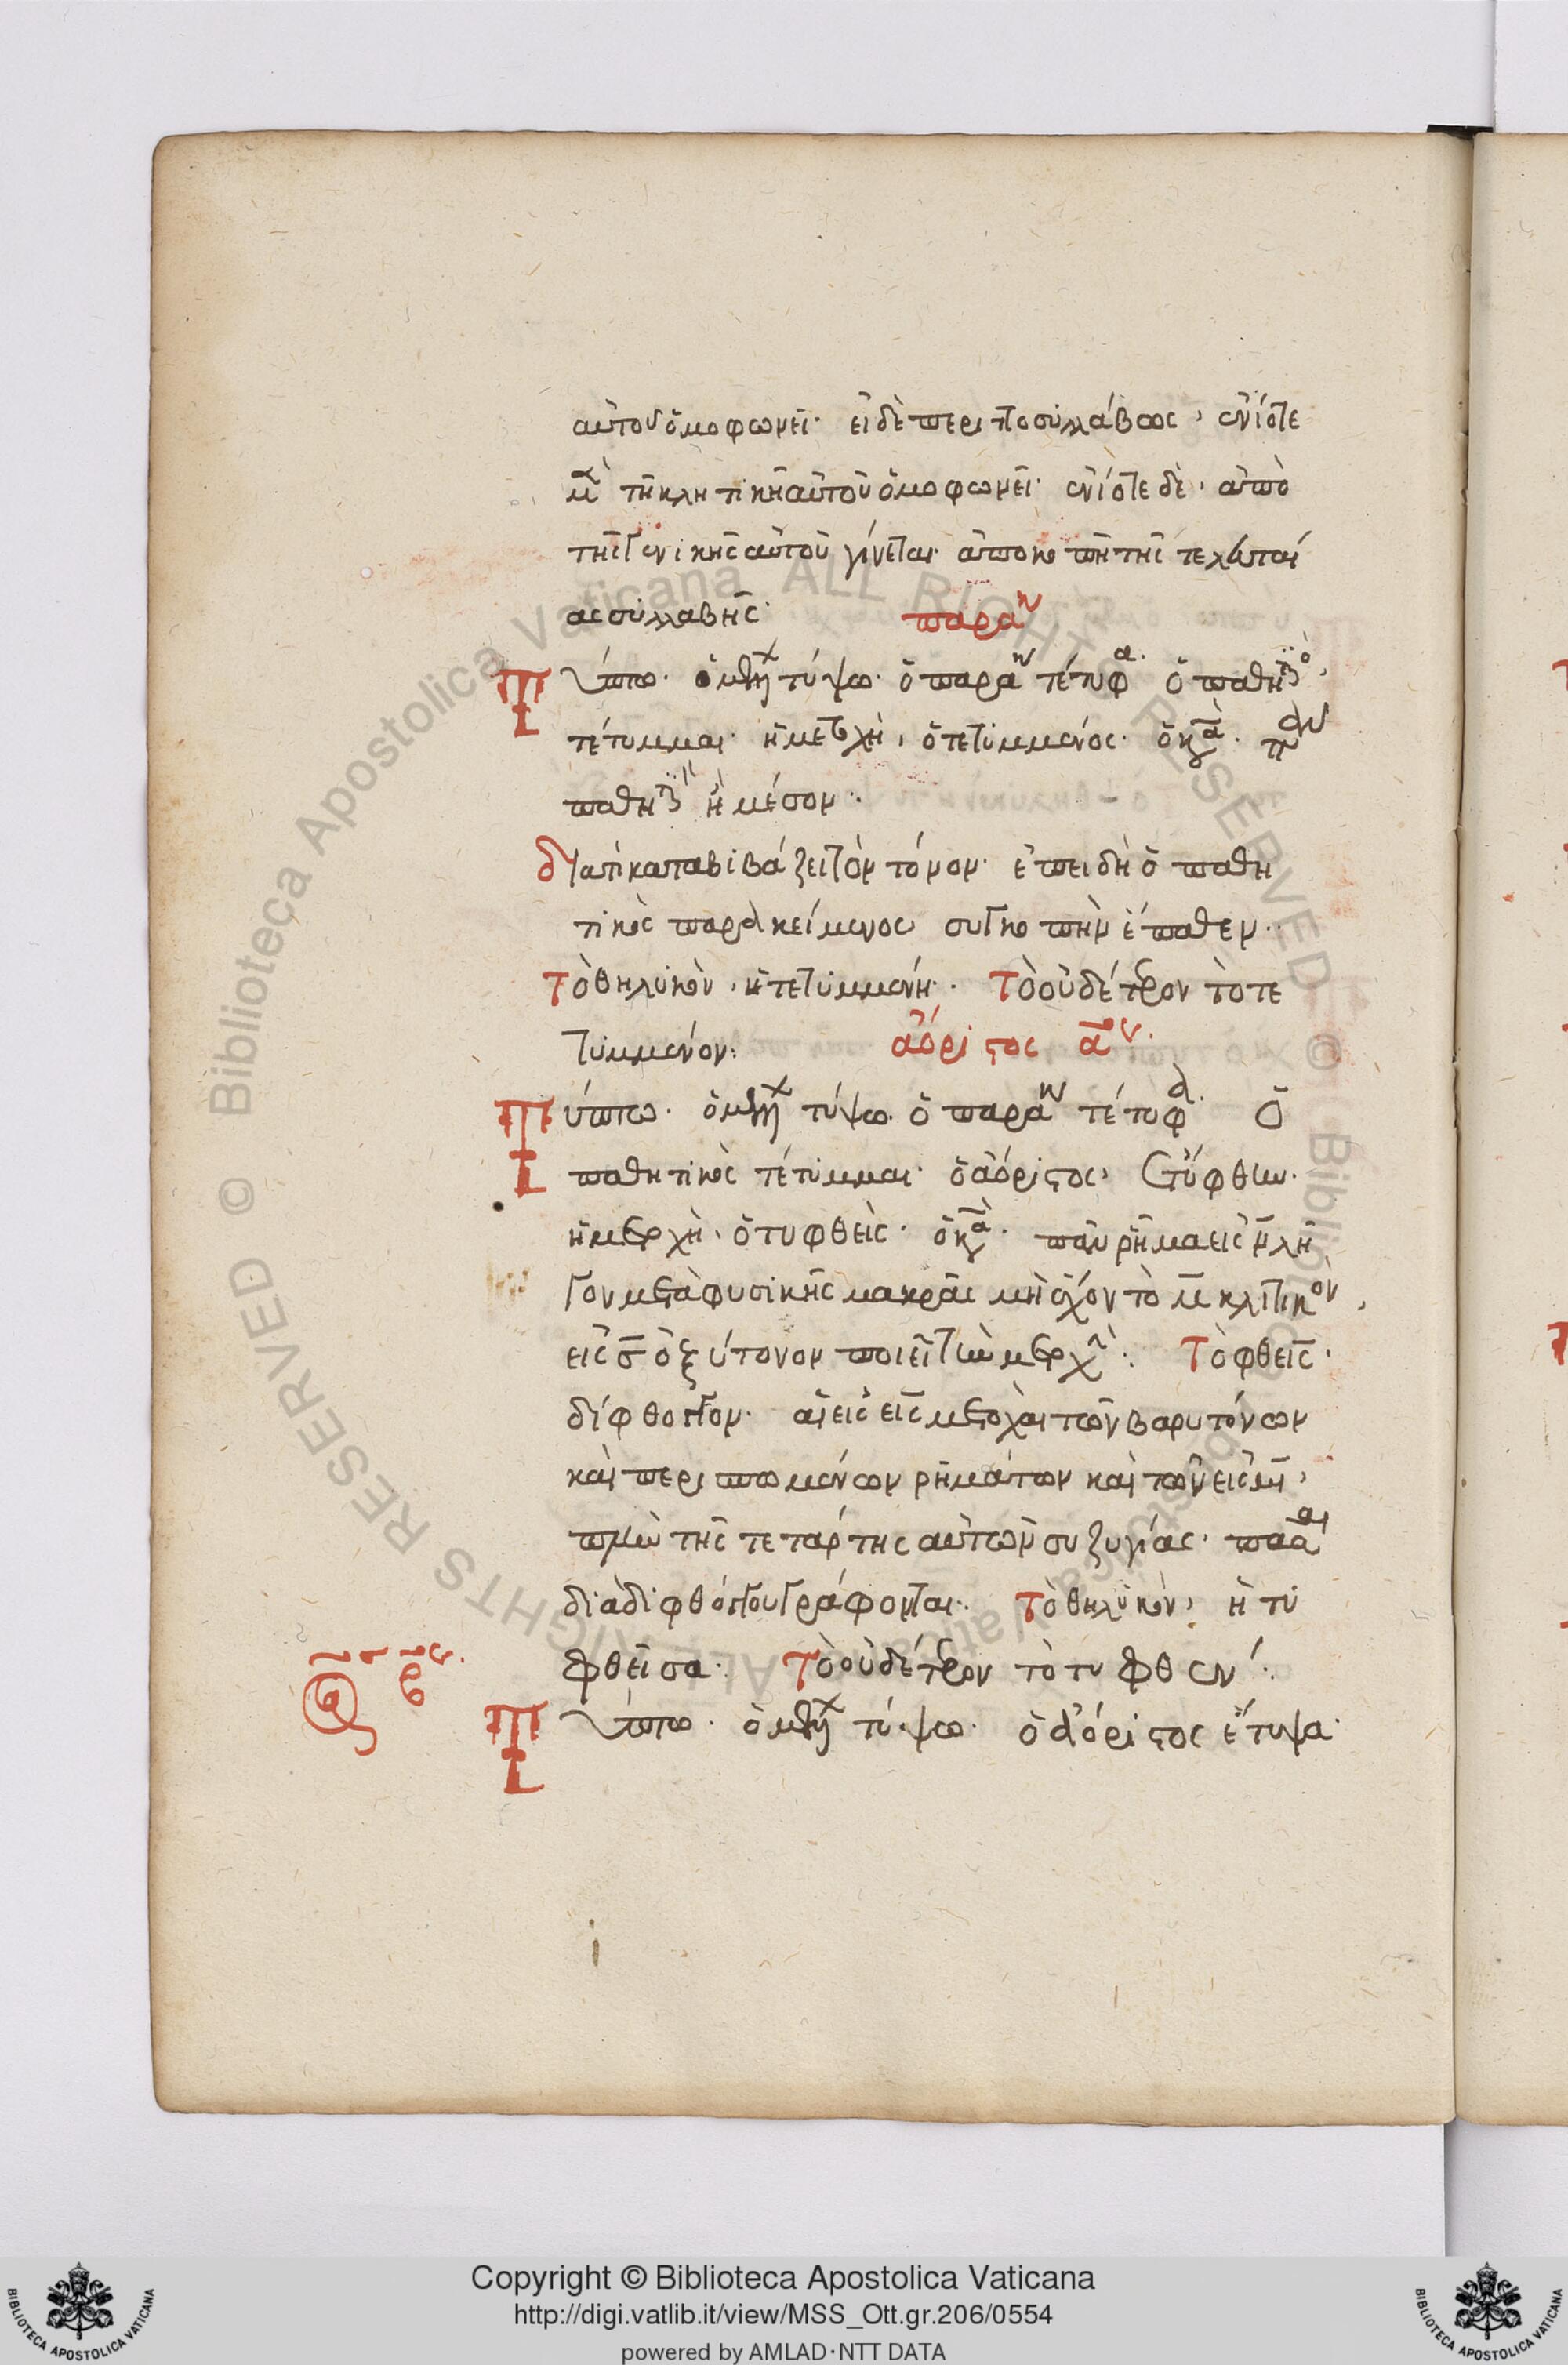 αὐτοῦ ὁμοφωνεῖ· εἰ δὲ περιττοσυλλάβως, ἐνίοτε
μὲν τῆ κλητικῆ αὐτοῦ ὁμοφωνεῖ· ἐνίοτε δὲ, ἀπὸ
τῆς γενικῆς αὐτοῦ γίνεται ἀποκοπῆ τῆς τελευταί
ας συλλαβῆς· παρα
Τύπτω· ὁ μέλλων τύψω· ὁ παρα τέτυφα· ὁ παθητικὸς,
τέτυμμαι· ἡ μετοχὴ, ὁ τετυμμένος· ὁ κα
παθητι ἢ μέσον·
διατί καταβιβάζει τὸν τόνον· ἐπειδὴ ὁ παθη
τικὸς παρακείμενος συγκοπὴν ἔπαθεν··
τὸ θηλυκὸν, ἡ τετυμμένη·· τὸ οὐδέτερον τὸ τε
τυμμένον: ἀόριστος α
Τύπτω· ὁ μέλλων τύψω· ὁ παρα τέτυφα· ὁ
παθητικὸς τέτυμμαι· ὁ ἀόριστος, ἐτύφθην·
ἡ μετοχὴ, ὁ τυφθείς· ὁ κα· πᾶν ῥῆμα εἰς ν λῆ
γον μετὰ φυσικῆς μακρᾶς μὴ ἔχον τὸ μ κλιτικὸν,
εἰς σ ὀξύτονον ποιεῖ τὴν μετοχὴν: τὸ φθεὶς·
δίφθογγον· αἱ εἰς εις μετοχαὶ τῶν βαρυτόνων
καὶ περισπωμένων ῥημάτων καὶ τῶν εἰς μι,
πλὴν τῆς τετάρτης αὐτῶν συζυγίας· πᾶσαι
διὰ διφθόγγου γράφονται·· τὸ θηλυκὸν, ἡ τυ
φθεῖσα·· τὸ οὐδέτερον τὸ τυφθέν:
Τύπτω· ὁ μέλλων τύψω· ὁ ἀόριστος ἔτυψα·
Copyright © Biblioteca Apostolica Vaticana
http://digi.vatlib.it/view/MSS_Ott.gr.206/0554
powered by AMLAD·NTT DATA